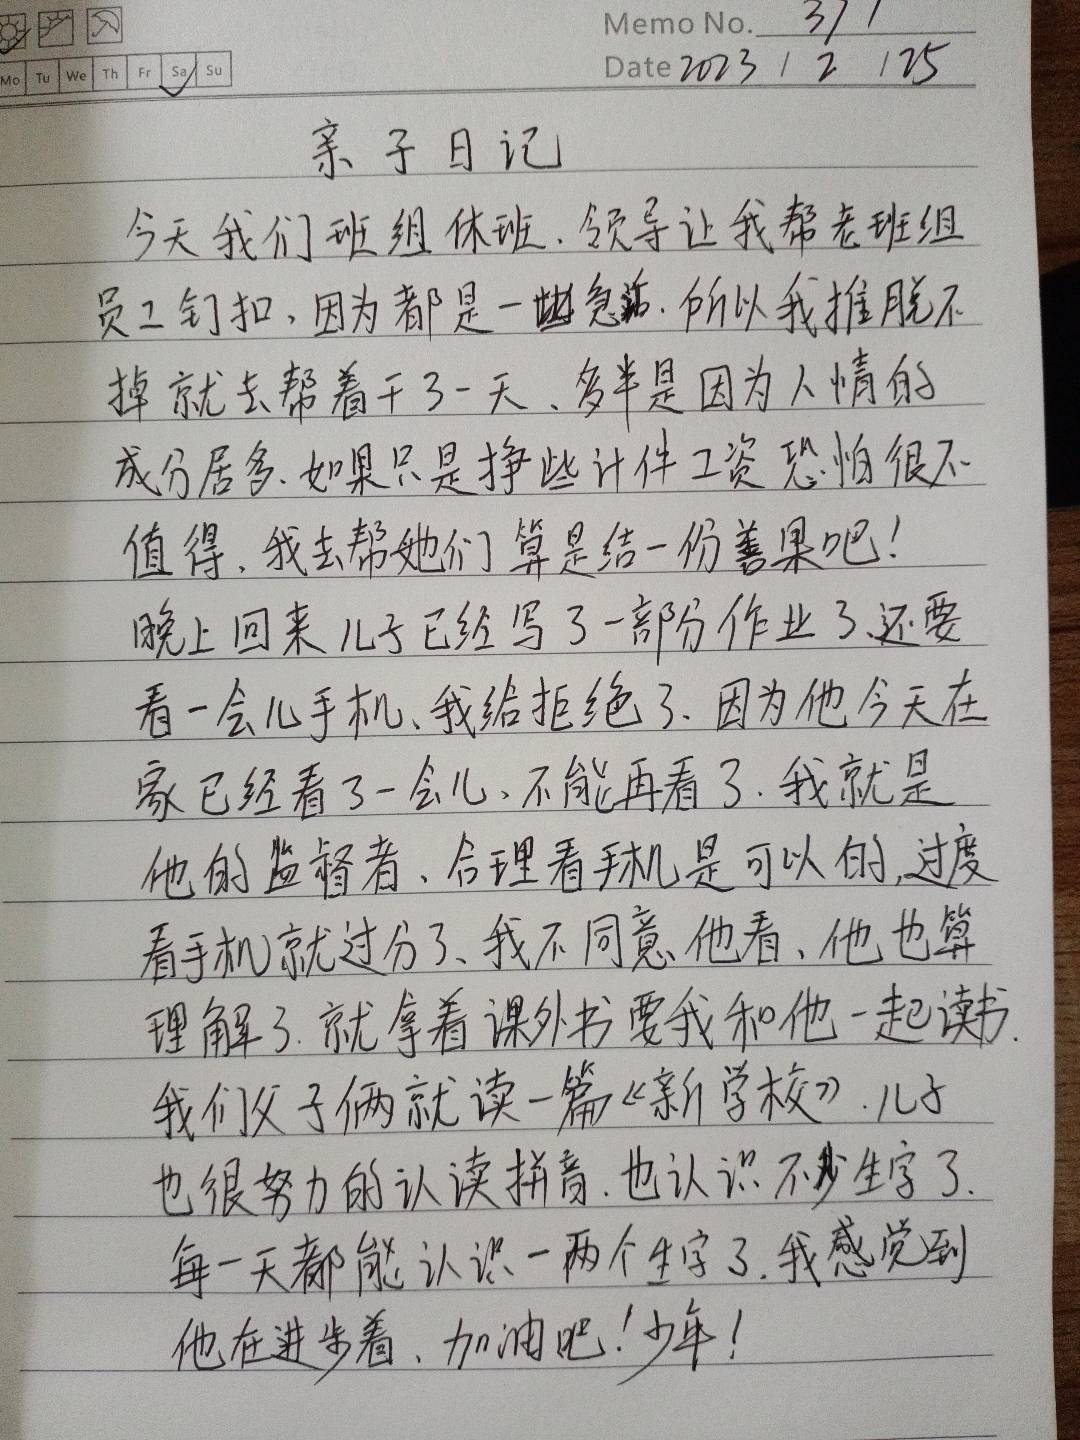 Memo No. 371
Mo Tu We Th Fr Sa Su
Date 2023 / 2 / 25
亲子日记
今天我们班组休班、领导让我帮老班组
员工钉扣、因为都是一些急活.所以我推脱不
掉就去帮着干了一天、多半是因为人情的
成分居多、如果只是挣些计件工资恐怕很不
值得、我去帮她们算是结一份善果吧!
晚上回来儿子已经写了一部分作业了、还要
看一会儿手机、我给拒绝了.因为他今天在
家已经看了一会儿、不能再看了.我就是
他的监督者、合理看手机是可以的,过度
看手机就过分了、我不同意他看、他也算
理解了.就拿着课外书要我和他一起读书.
我们父子俩就读一篇《新学校》.儿子
也很努力的认读拼音.也认识不少生字了.
每一天都能认识一两个生字了.我感觉到
他在进步着、加油吧!少年!